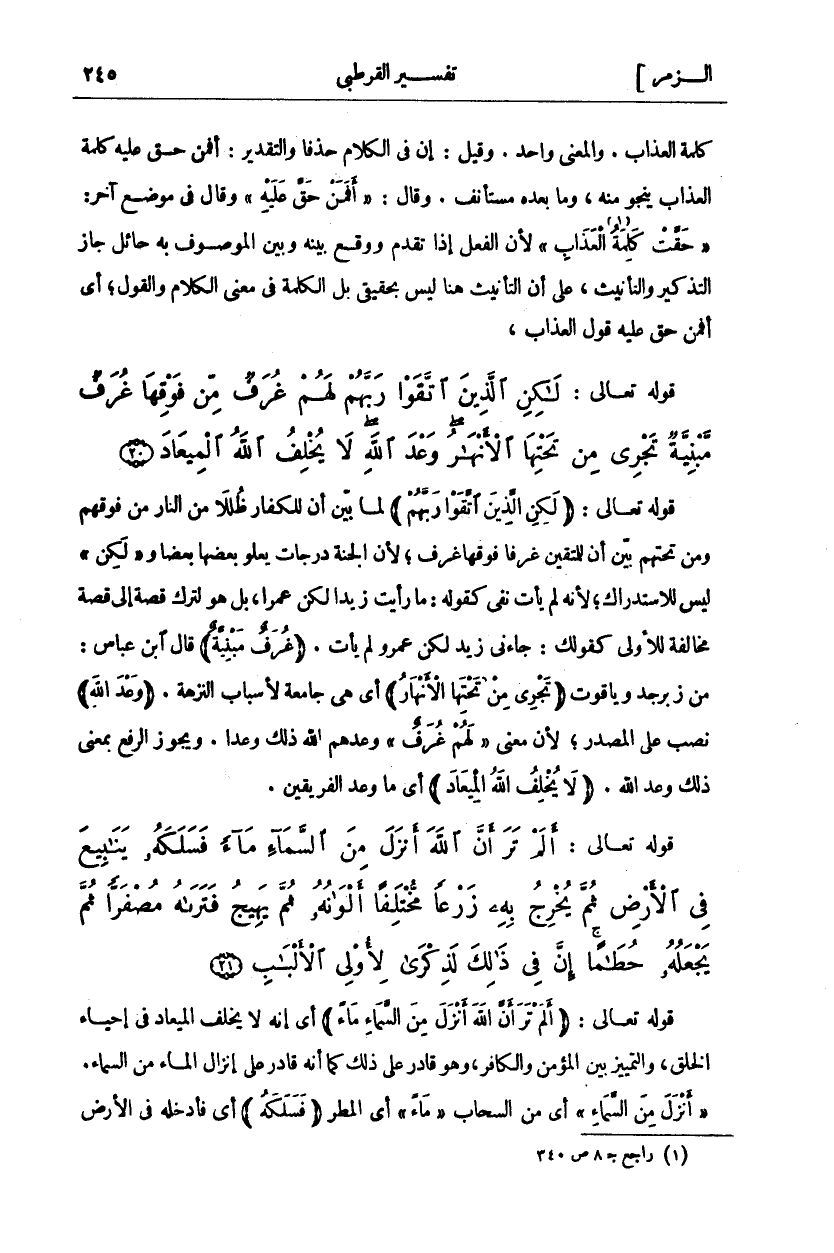 الـــزمر ] تفســـير القرطبى ٢٤٥
كلمة العذاب . والمعنى واحد . وقيل : إن فى الكلام حذفا والتقدير : أفمن حـق عليه كلمة
العذاب ينجو منه ، وما بعده مستأنف . وقال : « أَفَمَنْ حَقَّ عَلَيْهِ » وقال فى موضع آخر:
« حَقَّتْ كَلِمَةُ الْعَذَابِ » (١) لأن الفعل إذا تقدم ووقـع بينه وبين الموصـوف به حائل جاز
التذكير والتأنيث ، على أن التأنيث هنا ليس بحقيقى بل الكلمة فى معنى الكلام والقول؛ أى
أفمن حق عليه قول العذاب ،
قوله تعـالى : لَٰكِنِ ٱلَّذِينَ ٱتَّقَوْا۟ رَبَّهُمْ لَهُمْ غُرَفٌ مِّن فَوْقِهَا غُرَفٌ
مَّبْنِيَّةٌ تَجْرِى مِن تَحْتِهَا ٱلْأَنْهَٰرُ ۖ وَعْدَ ٱللَّهِ ۖ لَا يُخْلِفُ ٱللَّهُ ٱلْمِيعَادَ ٢٠
قوله تعـالى : ﴿ لَكِنِ الَّذِينَ ٱتَّقَوْا رَبَّهُمْ ﴾ لمـا بيّن أن للكفار ظُلَلًا من النار من فوقهم
ومن تحتهم بيّن أن للتقين غرفا فوقها غرف ؛ لأن الجنة درجات يعلو بعضها بعضا و« لَكِنِ »
ليس للاستدراك؛ لأنه لم يأت نفى كقوله : ما رأيت زيدا لكن عمرا، بل هو لترك قصة إلى قصة
مخالفة للأولى كقولك : جاءنى زيد لكن عمرو لم يأت . ﴿ غُرَفٌ مَبْنِيَّةٌ ﴾ قال ٱبن عباس :
من زبرجد وياقوت ﴿ تَجْرِى مِنْ تَحْتِهَا الْأَنْهَارُ ﴾ أى هى جامعة لأسباب النزهة . ﴿ وَعْدَ اللَّهِ ﴾
نصب على المصدر ؛ لأن معنى « لَهُمْ غُرَفٌ » وعدهم الله ذلك وعدا . ويجوز الرفع بمعنى
ذلك وعد الله . ﴿ لَا يُخْلِفُ اللَّهُ الْمِيعَادَ ﴾ أى ما وعد الفريقين .
قوله تعـالى : أَلَمْ تَرَ أَنَّ ٱللَّهَ أَنزَلَ مِنَ ٱلسَّمَآءِ مَآءً فَسَلَكَهُۥ يَنَٰبِيعَ
فِى ٱلْأَرْضِ ثُمَّ يُخْرِجُ بِهِۦ زَرْعًا مُّخْتَلِفًا أَلْوَٰنُهُۥ ثُمَّ يَهِيجُ فَتَرَىٰهُ مُصْفَرًّا ثُمَّ
يَجْعَلُهُۥ حُطَٰمًا ۚ إِنَّ فِى ذَٰلِكَ لَذِكْرَىٰ لِأُو۟لِى ٱلْأَلْبَٰبِ ٢١
قوله تعـالى : ﴿ أَلَمْ تَرَ أَنَّ اللَّهَ أَنْزَلَ مِنَ السَّمَاءِ مَاءً ﴾ أى إنه لا يخلف الميعاد فى إحيـاء
الخلق، والتمييز بين المؤمن والكافر، وهو قادر على ذلك كما أنه قادر على إنزال المـاء من السماء.
« أَنْزَلَ مِنَ السَّمَاءِ » أى من السحاب « مَاءً » أى المطر ﴿ فَسَلَكَهُ ﴾ أى فأدخله فى الأرض
(١) راجع جـ ٨ ص ٣٤٠